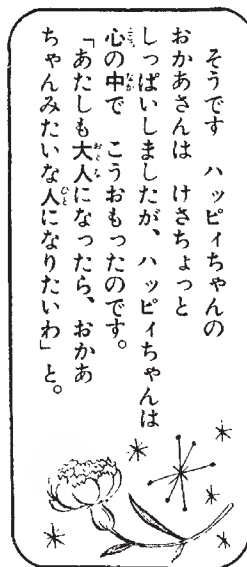 そうです　ハッピィちゃんの
おかあさんは　けさちょっと
しっぱいしましたが、ハッピィちゃんは
心の中で　こうおもったのです。
「あたしも大人になったら、おかあ
ちゃんみたいな人になりたいわ」と。